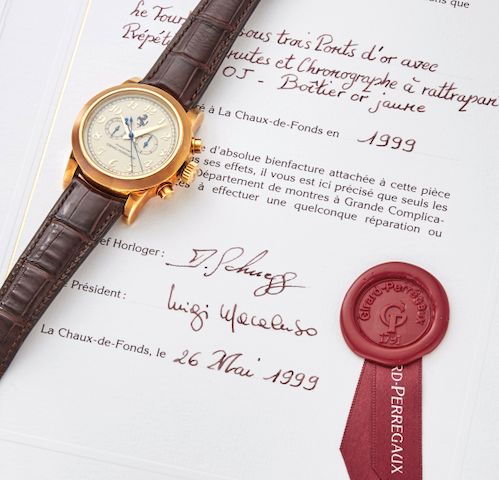 que vous
he Tour sous trois Ponts d'or avec
Répét utes et Chronographe à rattrapan
OJ - Boîtier or jaune
é à La Chaux-de-Fonds en 1999
d'absolue bienfacture attachée à cette pièce
us ses effets, il vous est ici précisé que seuls les
Département de montres à Grande Complica-
és à effectuer une quelconque réparation ou
ef Horloger :
e Président : Luigi Macaluso
La Chaux-de-Fonds, le 26 Mai 1999
Girard-Perregaux
GP
1791
RD-PERREGAUX